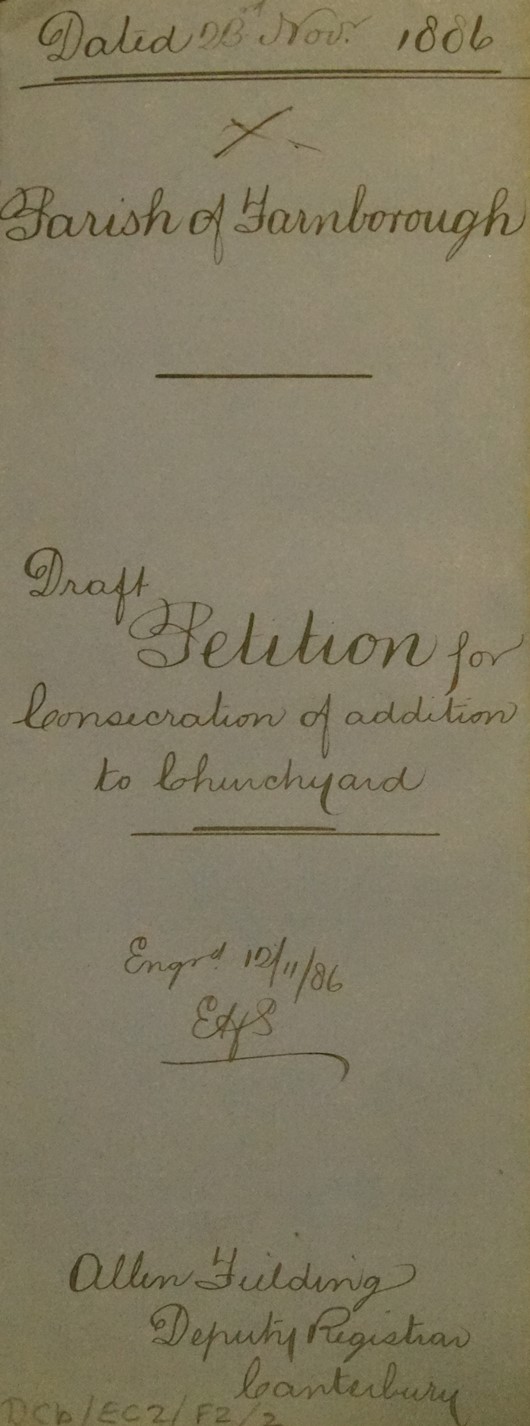 Dated 23rd Nov. 1886
X
Parish of Farnborough
Draft
Petition for
Consecration of addition
to Churchyard
Engrd. 12/11/86
Allen Fielding
Deputy Registrar
Canterbury
DCb/EC2/F2/2